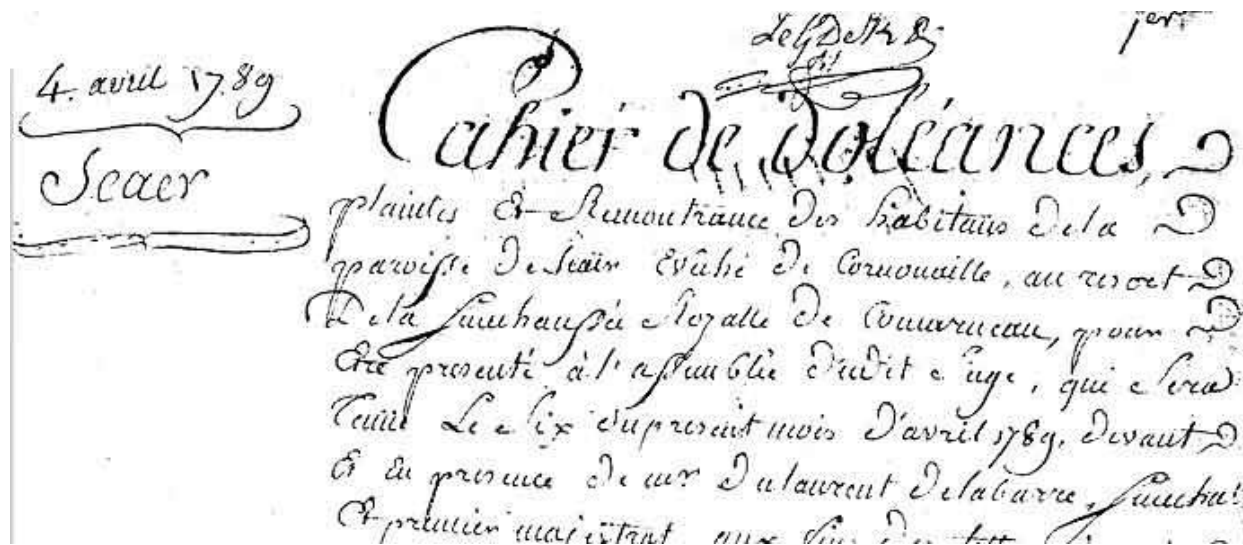 4. avril 1789
Scaer
1er
Cahier de doléances,
plaintes Et Remontrance des habitans de la
paroisse de Scaër Evêché de Cornouaille, au resort
De la Senechaussée Royalle de Concarneau, pour
Etre presenté à l'assemblée dudit Siege, qui Sera
Tenue Le Six du present mois d'avril 1789. devant
Et En presence de mr dulaurent delabarre, Senechal
Et premier majestrat, aux fins des